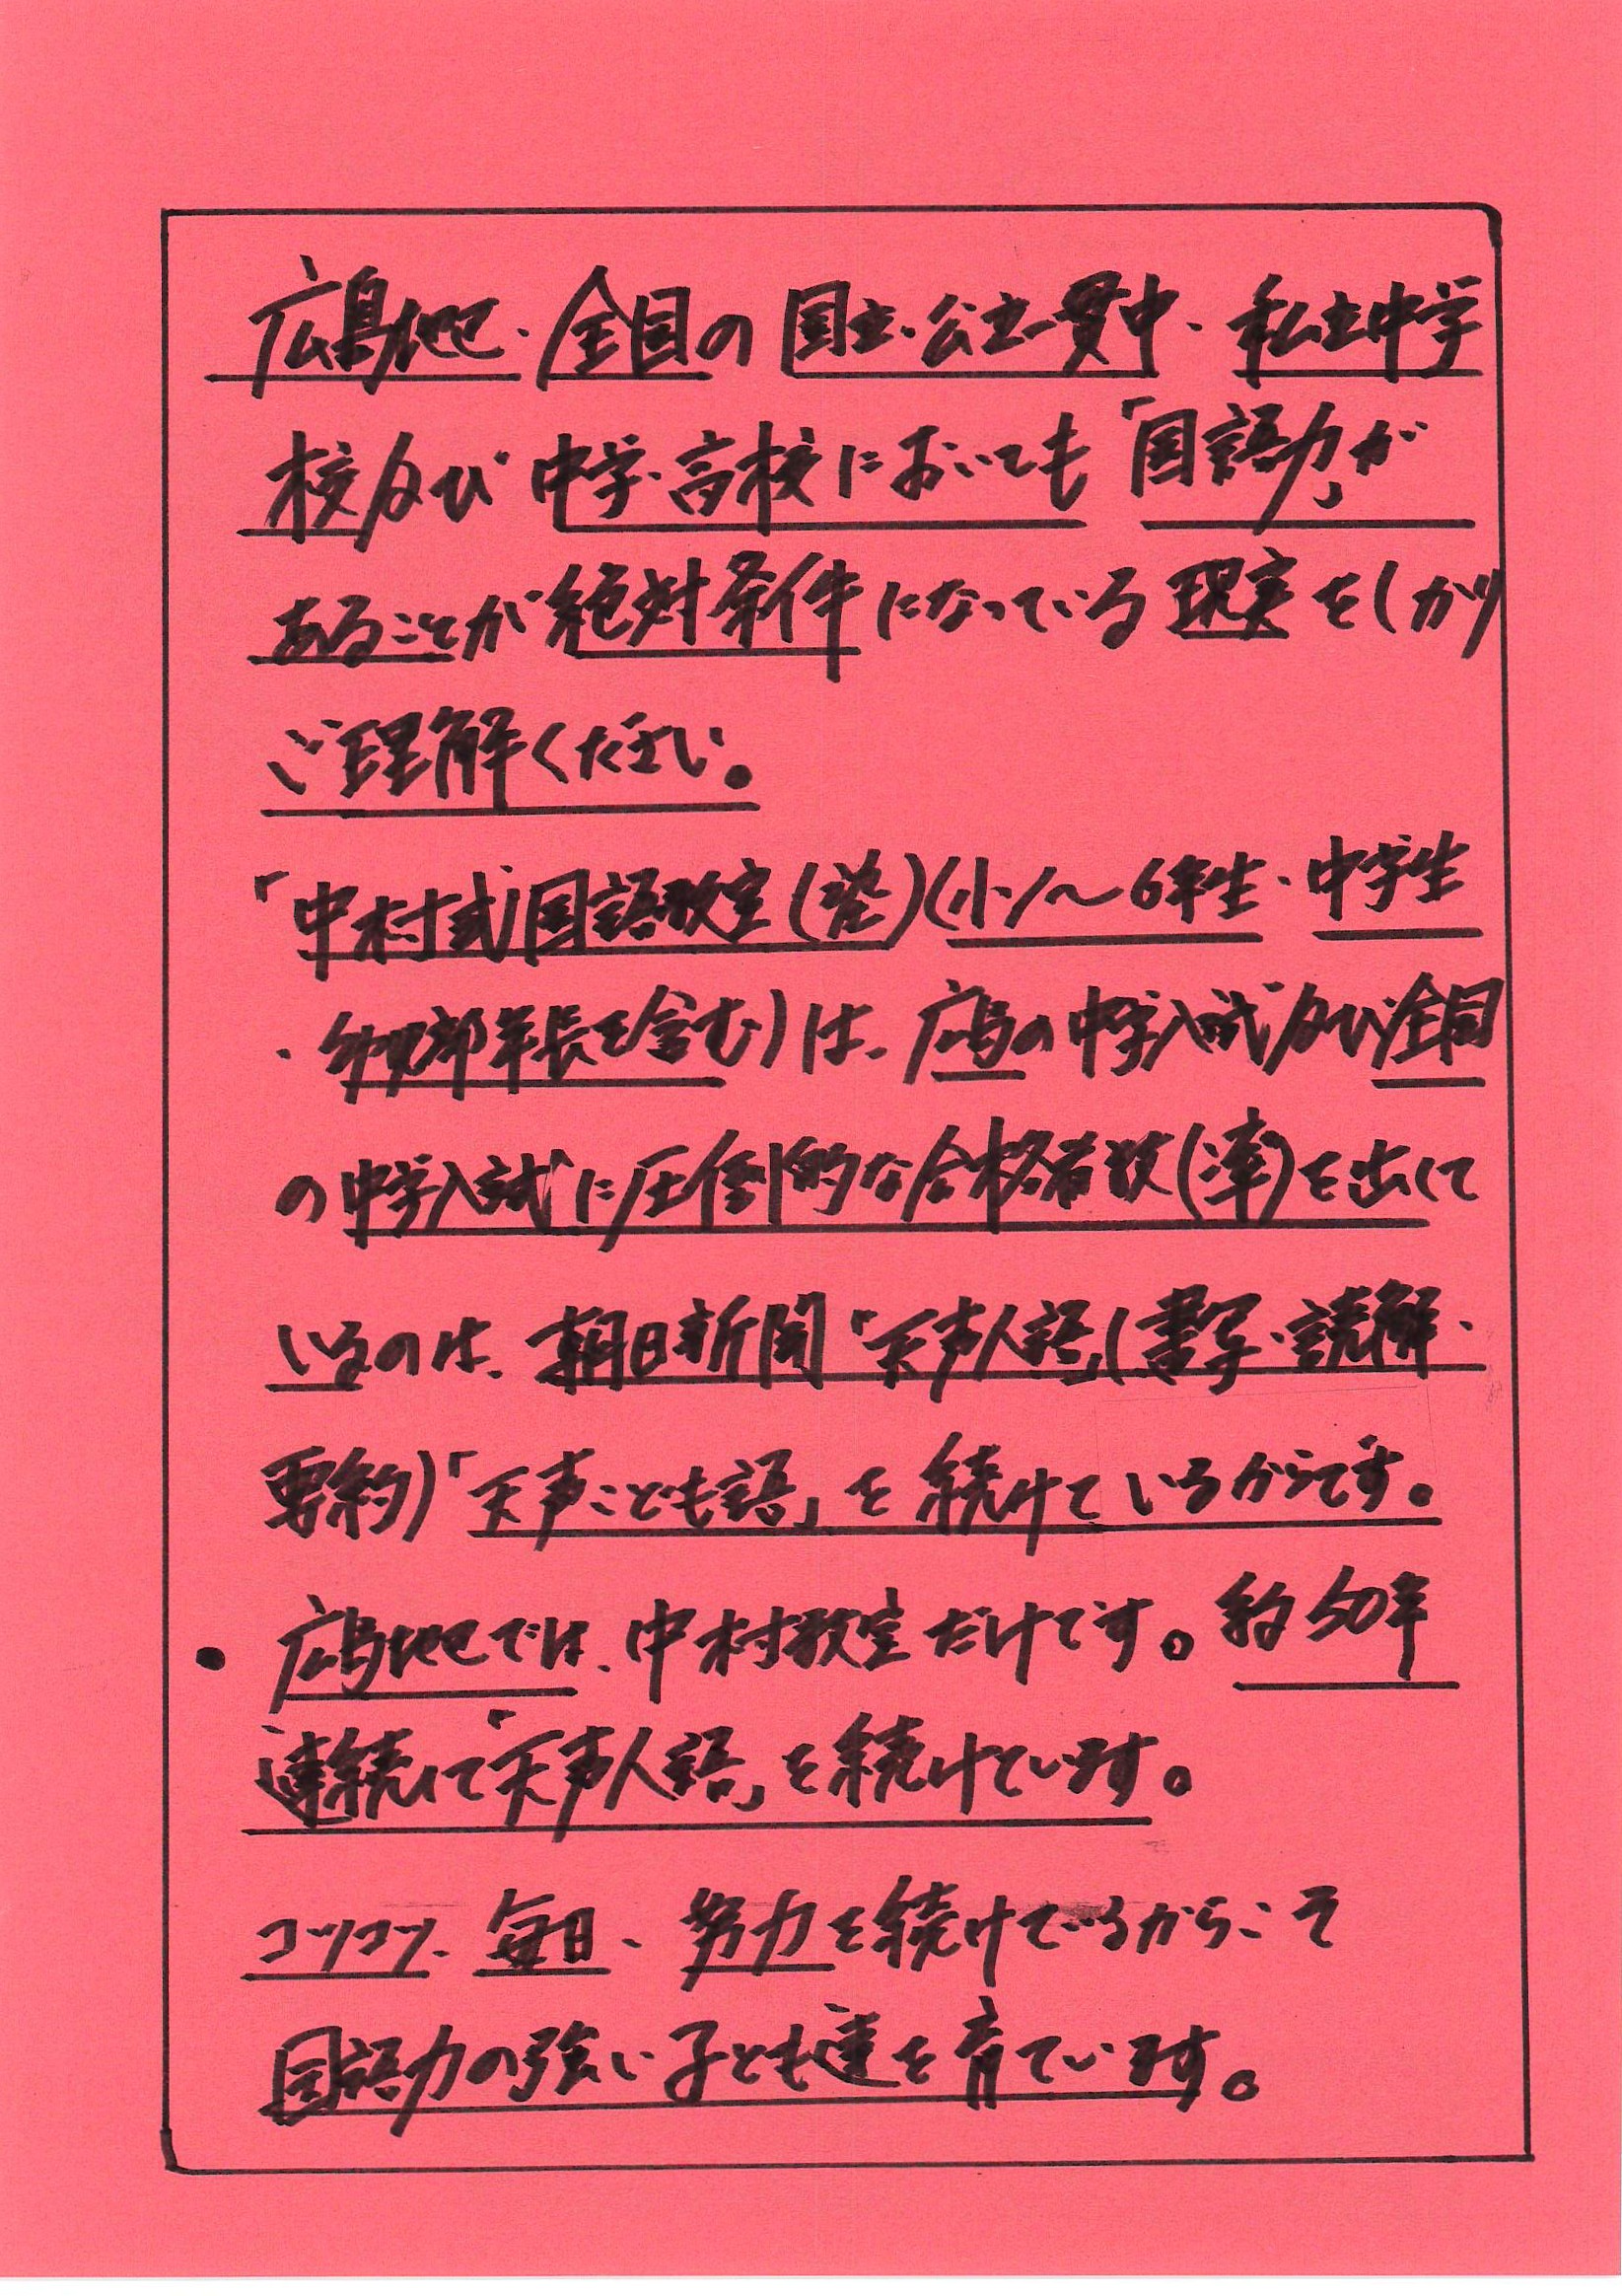 広島地区・全国の国立・公立一貫中・私立中学
校及び中学・高校においても「国語力」が
あることが絶対条件になっている現実をしっかり
ご理解ください。
「中村式」国語教室(塾)(小1〜6年生・中学生
・幼児部年長を含む)は、広島の中学入試及び全国
の中学入試に圧倒的な合格者数(率)を出して
いるのは、朝日新聞「天声人語」(書写・読解・
要約)「天声こども語」を続けているからです。
・広島地区では、中村教室だけです。約50年
連続して「天声人語」を続けています。
コツコツ、毎日、努力を続けているからこそ
国語力の強い子ども達を育てています。